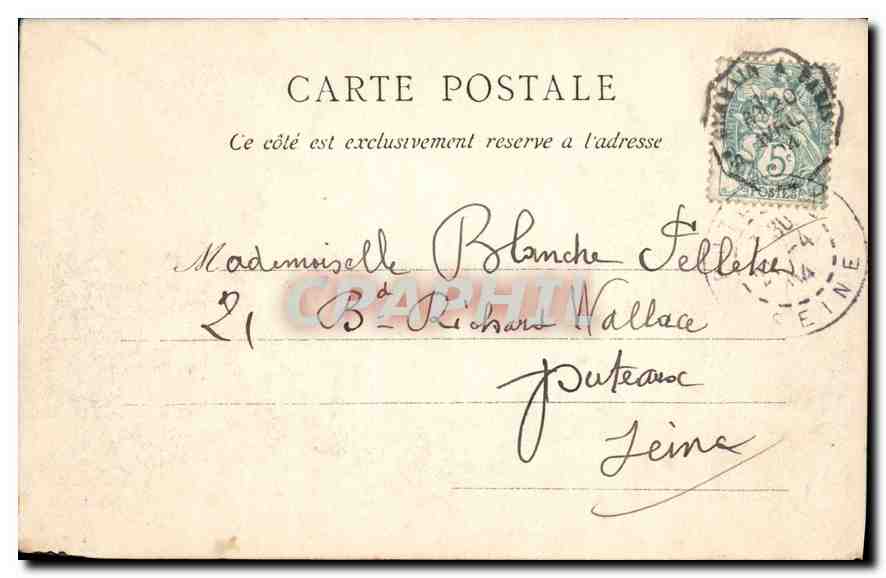 CARTE POSTALE
Ce côté est exclusivement reserve a l'adresse
5c
POSTES
20
AVRIL
04
SEINE
Mademoiselle Blanche
21 Bd Richard Wallace
Puteaux
Seine
CPAPHIL